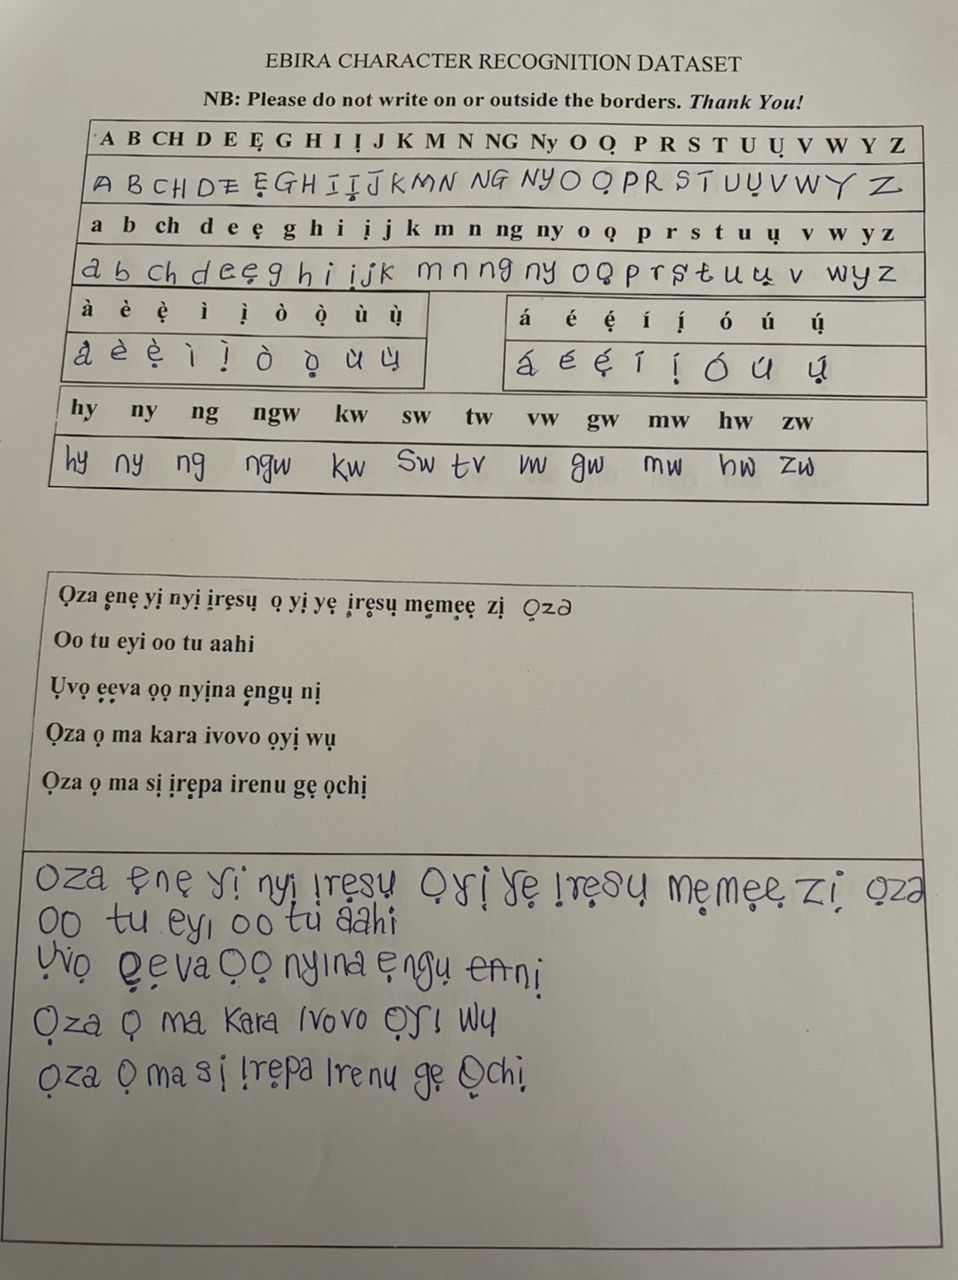 EBIRA CHARACTER RECOGNITION DATASET
NB: Please do not write on or outside the borders. Thank You!
A B CH D E Ẹ G H I Ị J K M N NG Ny O Ọ P R S T U Ụ V W Y Z
A B CH D E Ẹ G H I Ị J K M N NG NY O Ọ P R S T U Ụ V W Y Z
a b ch d e ẹ g h i ị j k m n ng ny o ọ p r s t u ụ v w y z
a b ch d e ẹ g h i ị j k m n ng ny o ọ p r s t u ụ v w y z
à è ẹ̀ ì ị̀ ò ọ̀ ù ụ̀ á é ẹ́ í ị́ ó ú ụ́
à è ẹ̀ ì ị̀ ò ọ̀ ù ụ̀ á é ẹ́ í ị́ ó ú ụ́
hy ny ng ngw kw sw tw vw gw mw hw zw
hy ny ng ngw kw sw tv vw gw mw hw zw
Ọza ẹnẹ yị nyị ịrẹsụ ọ yị yẹ ịrẹsụ mẹmẹẹ zị ọza
Oo tu eyi oo tu aahi
Ụvọ ẹẹva ọọ nyịna ẹngụ nị
Ọza ọ ma kara ivovo ọyị wụ
Ọza ọ ma sị ịrẹpa irenu gẹ ọchị
Oza ẹnẹ yị nyị ịrẹsụ Ọ yị yẹ ịrẹsụ mẹmẹẹ zị ọza
OO tu eyi oo tu aahi
Ụvọ ẹẹva Ọọ nyina ẹngụ nị
Ọza Ọ ma kara ivovo ọyi wu
Ọza Ọ ma sị ịrẹpa irenu gẹ Ọchị